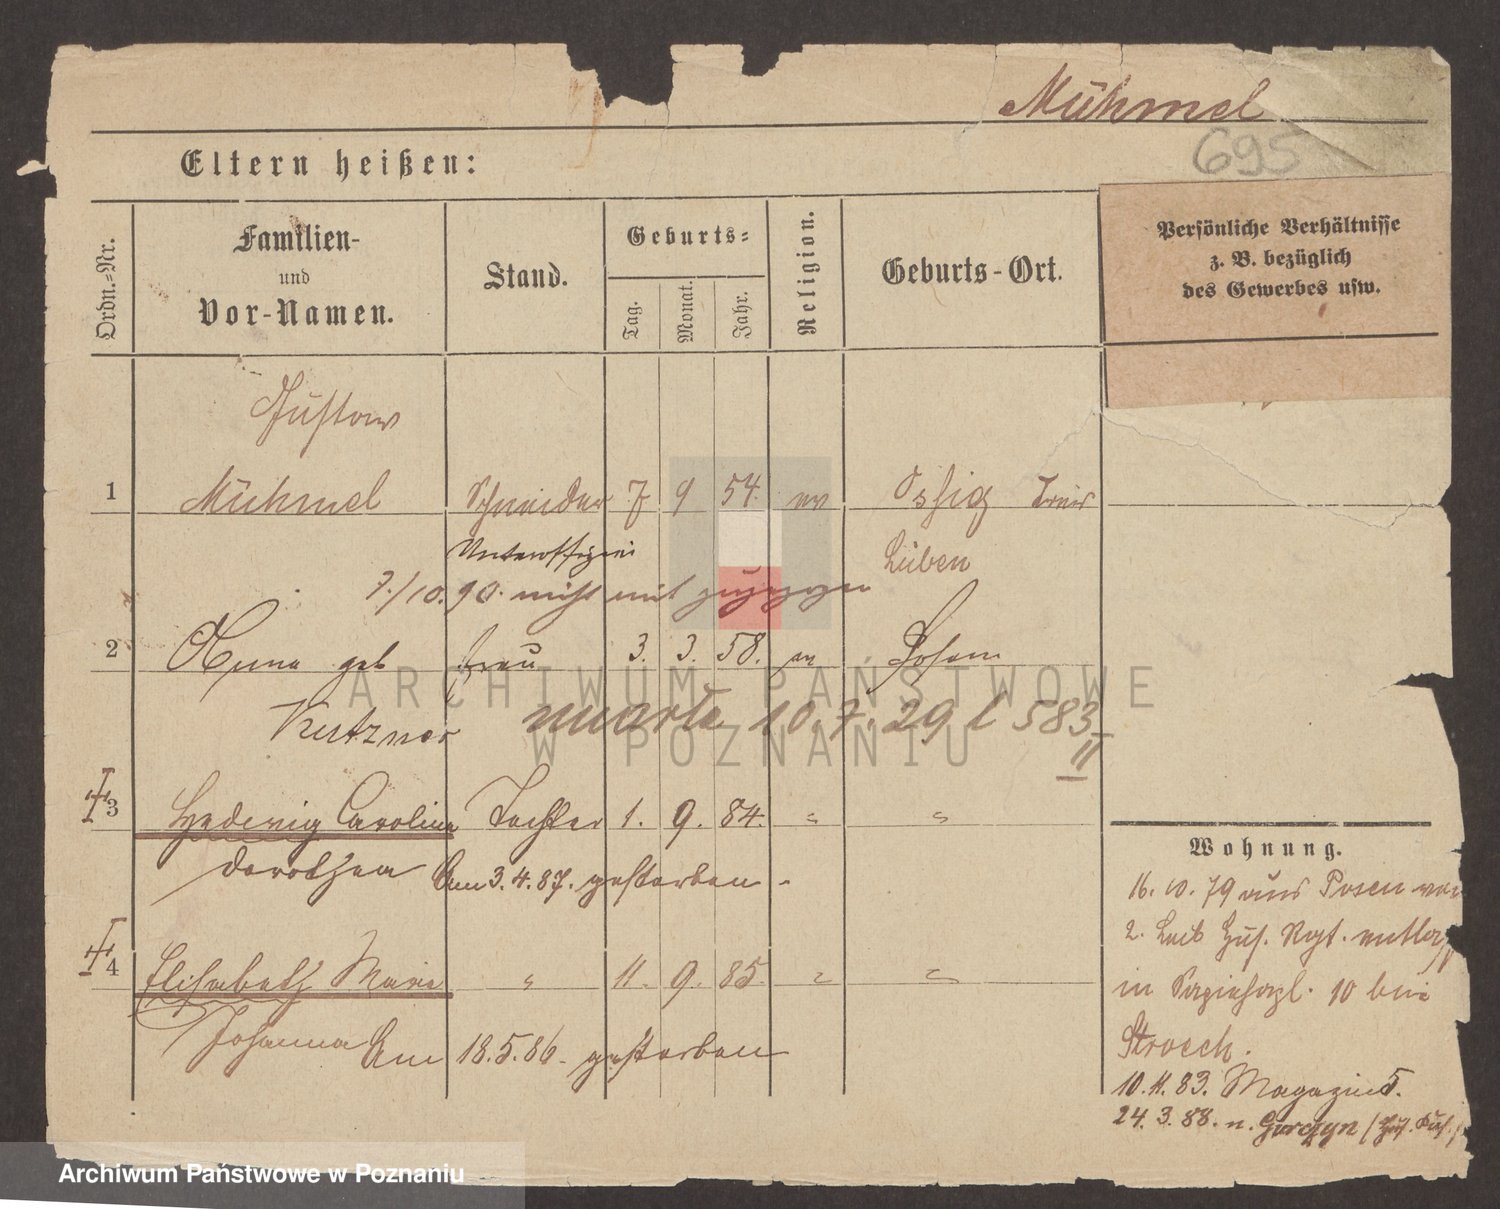 Mühmel
695
Eltern heißen:
Ordn.-Nr.
Familien-
und
Vor-Namen.
Stand.
Geburts-
Tag.
Monat.
Jahr.
Religion.
Geburts-Ort.
Persönliche Verhältnisse
z. B. bezüglich
des Gewerbes usw.
Gustav
1 Mühmel Schneider 7 9 54. ev Ossig Kreis
Unteroffizier Lüben
7./10.90. nicht mit zugezogen
2 Anna geb Frau 3. 3. 58. ev Posen
Kutzner
umarła 10.7.29 l 583
II
3 Hedwig Caroline Tochter 1. 9. 84. " "
Dorothea Am 3.4.87. gestorben
4 Elisabeth Marie " 11. 9. 85. " "
Johanna Am 18.5.86. gestorben
Wohnung.
16.10.79 aus Posen von
2. Leib Hus. Rgt.
in 10 bei
Stroech.
10.11.83. Magazinst.
24.3.88. n. Gurczyn
ARCHIWUM PAŃSTWOWE
W POZNANIU
Archiwum Państwowe w Poznaniu